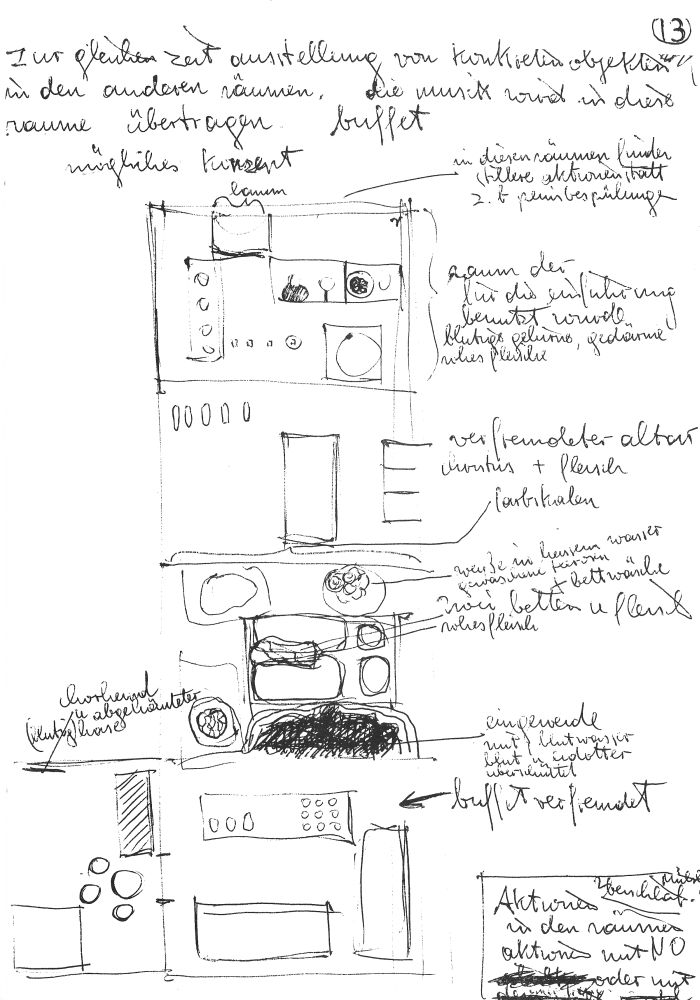 13
zur gleichen zeit ausstellung von konkreten objekten
in den anderen räumen. die musik wird in diese
räume übertragen. buffet
mögliches konzept
in diesen räumen finden
stillere aktionen statt
z. b penisbespülungen
raum der
für die einführung
benutzt wurde
blutiges gehirne, gedärme
rohes fleisch
verfremdeter altar
+ fleisch
farbskalen
weiße in heissem wasser
gewaschene
+ bettwäsche
zwei betten u fleisch
rohes fleisch
chorhemd
u abgehäuteter
blutiger hase
eingeweide
mit blutwasser
blut u eidotter
überschüttet
buffet verfremdet
Aktionen
in den räumen
aktionen mit NO
oder mit